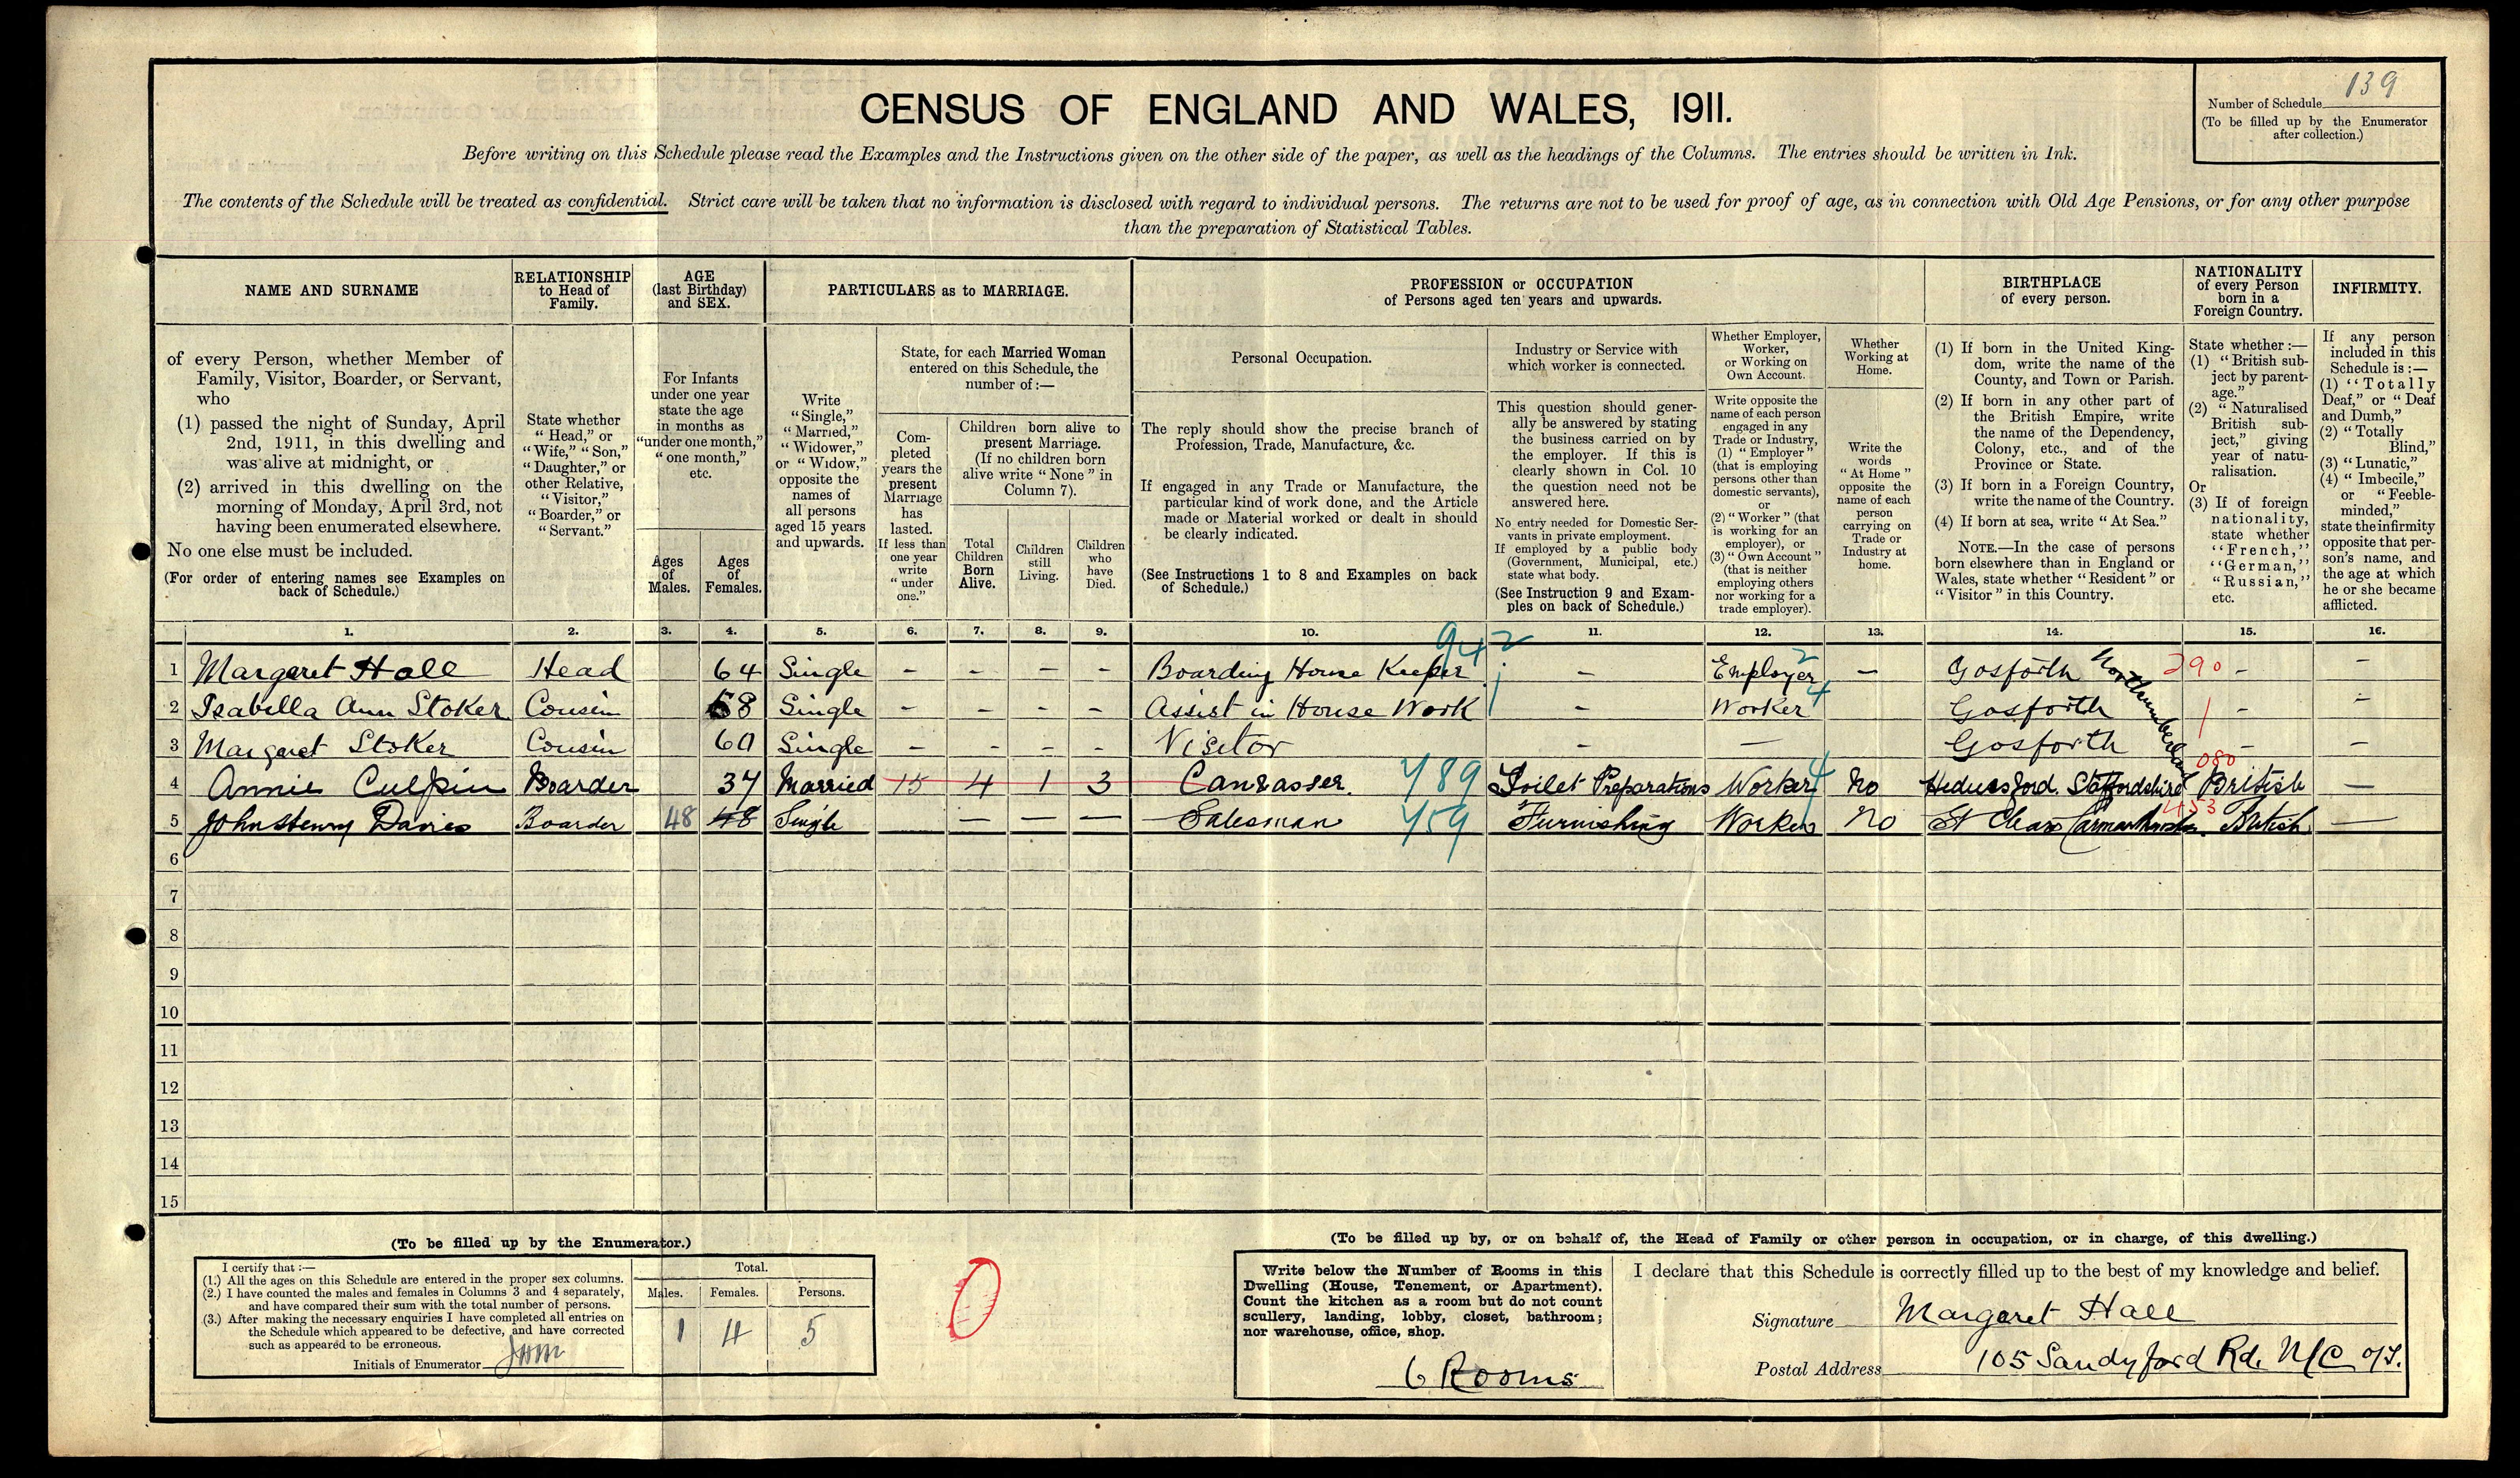 139
Number of Schedule
(To be filled up by the Enumerator
after collection.)
CENSUS OF ENGLAND AND WALES, 1911.
Before writing on this Schedule please read the Examples and the Instructions given on the other side of the paper, as well as the headings of the Columns. The entries should be written in Ink.
The contents of the Schedule will be treated as confidential. Strict care will be taken that no information is disclosed with regard to individual persons. The returns are not to be used for proof of age, as in connection with Old Age Pensions, or for any other purpose
than the preparation of Statistical Tables.
NAME AND SURNAME
RELATIONSHIP
to Head of
Family.
AGE
(last Birthday)
and SEX.
PARTICULARS as to MARRIAGE.
PROFESSION or OCCUPATION
of Persons aged ten years and upwards.
BIRTHPLACE
of every person.
NATIONALITY
of every Person
born in a
Foreign Country.
INFIRMITY.
of every Person, whether Member of
Family, Visitor, Boarder, or Servant,
who
(1) passed the night of Sunday, April
2nd, 1911, in this dwelling and
was alive at midnight, or
(2) arrived in this dwelling on the
morning of Monday, April 3rd, not
having been enumerated elsewhere.
No one else must be included.
(For order of entering names see Examples on
back of Schedule.)
State whether
"Head," or
"Wife," "Son,"
"Daughter," or
other Relative,
"Visitor,"
"Boarder," or
"Servant."
For Infants
under one year
state the age
in months as
"under one month,"
"one month,"
etc.
Ages
of
Males.
Ages
of
Females.
Write
"Single,"
"Married,"
"Widower,"
or "Widow,"
opposite the
names of
all persons
aged 15 years
and upwards.
State, for each Married Woman
entered on this Schedule, the
number of:—
Com-
pleted
years the
present
Marriage
has
lasted.
If less than
one year
write
"under
one."
Children born alive to
present Marriage.
(If no children born
alive write "None" in
Column 7).
Total
Children
Born
Alive.
Children
still
Living.
Children
who
have
Died.
Personal Occupation.
The reply should show the precise branch of
Profession, Trade, Manufacture, &c.
If engaged in any Trade or Manufacture, the
particular kind of work done, and the Article
made or Material worked or dealt in should
be clearly indicated.
(See Instructions 1 to 8 and Examples on back
of Schedule.)
Industry or Service with
which worker is connected.
This question should gener-
ally be answered by stating
the business carried on by
the employer. If this is
clearly shown in Col. 10
the question need not be
answered here.
No entry needed for Domestic Ser-
vants in private employment.
If employed by a public body
(Government, Municipal, etc.)
state what body.
(See Instruction 9 and Exam-
ples on back of Schedule.)
Whether Employer,
Worker,
or Working on
Own Account.
Write opposite the
name of each person
engaged in any
Trade or Industry,
(1) "Employer"
(that is employing
persons other than
domestic servants),
or
(2) "Worker" (that
is working for an
employer), or
(3) "Own Account"
(that is neither
employing others
nor working for a
trade employer).
Whether
Working at
Home.
Write the
words
"At Home"
opposite the
name of each
person
carrying on
Trade or
Industry at
home.
(1) If born in the United King-
dom, write the name of the
County, and Town or Parish.
(2) If born in any other part of
the British Empire, write
the name of the Dependency,
Colony, etc., and of the
Province or State.
(3) If born in a Foreign Country,
write the name of the Country.
(4) If born at sea, write "At Sea."
NOTE.—In the case of persons
born elsewhere than in England or
Wales, state whether "Resident" or
"Visitor" in this Country.
State whether:—
(1) "British sub-
ject by parent-
age."
(2) "Naturalised
British sub-
ject," giving
year of natu-
ralisation.
Or
(3) If of foreign
nationality,
state whether
"French,"
"German,"
"Russian,"
etc.
If any person
included in this
Schedule is:—
(1) "Totally
Deaf," or "Deaf
and Dumb,"
(2) "Totally
Blind,"
(3) "Lunatic,"
(4) "Imbecile,"
or "Feeble-
minded,"
state the infirmity
opposite that per-
son's name, and
the age at which
he or she became
afflicted.
1. 2. 3. 4. 5. 6. 7. 8. 9. 10. 11. 12. 13. 14. 15. 16.
942
1 Margaret Hall Head 64 Single – – – – Boarding House Keeper – Employer 2 – Gosforth Northumberland 290 – –
2 Isabella Ann Stoker Cousin 68 Single – – – – Assist in House Work – Worker 4 Gosforth – –
3 Margaret Stoker Cousin 60 Single – – – – Visitor – – Gosforth – –
080
4 Annie Culpin Boarder 37 Married 15 4 1 3 Canvasser. 789 Toilet Preparations Worker 4 No Hednesford. Staffordshire British –
453
5 John Henry Davies Boarder 48 48 Single – – – Salesman 759 Furnishing Worker No St Clears Carmarthenshire. British –
6
7
8
9
10
11
12
13
14
15
(To be filled up by the Enumerator.)
I certify that:—
(1.) All the ages on this Schedule are entered in the proper sex columns.
(2.) I have counted the males and females in Columns 3 and 4 separately,
and have compared their sum with the total number of persons.
(3.) After making the necessary enquiries I have completed all entries on
the Schedule which appeared to be defective, and have corrected
such as appeared to be erroneous.
Initials of Enumerator
Total.
Males. Females. Persons.
1 4 5
0
(To be filled up by, or on behalf of, the Head of Family or other person in occupation, or in charge, of this dwelling.)
Write below the Number of Rooms in this
Dwelling (House, Tenement, or Apartment).
Count the kitchen as a room but do not count
scullery, landing, lobby, closet, bathroom;
nor warehouse, office, shop.
6 Rooms
I declare that this Schedule is correctly filled up to the best of my knowledge and belief.
Signature Margaret Hall
Postal Address 105 Sandyford Rd. N/C o/T.